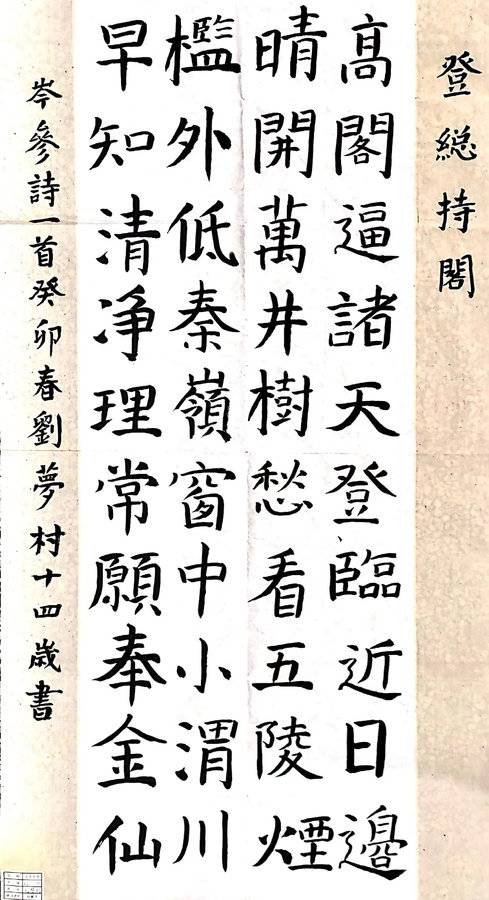 登總持閣
高閣逼諸天登臨近日邊
晴開萬井樹愁看五陵煙
檻外低秦嶺窗中小渭川
早知清净理常願奉金仙
岑參詩一首癸卯春劉夢村十四歲書